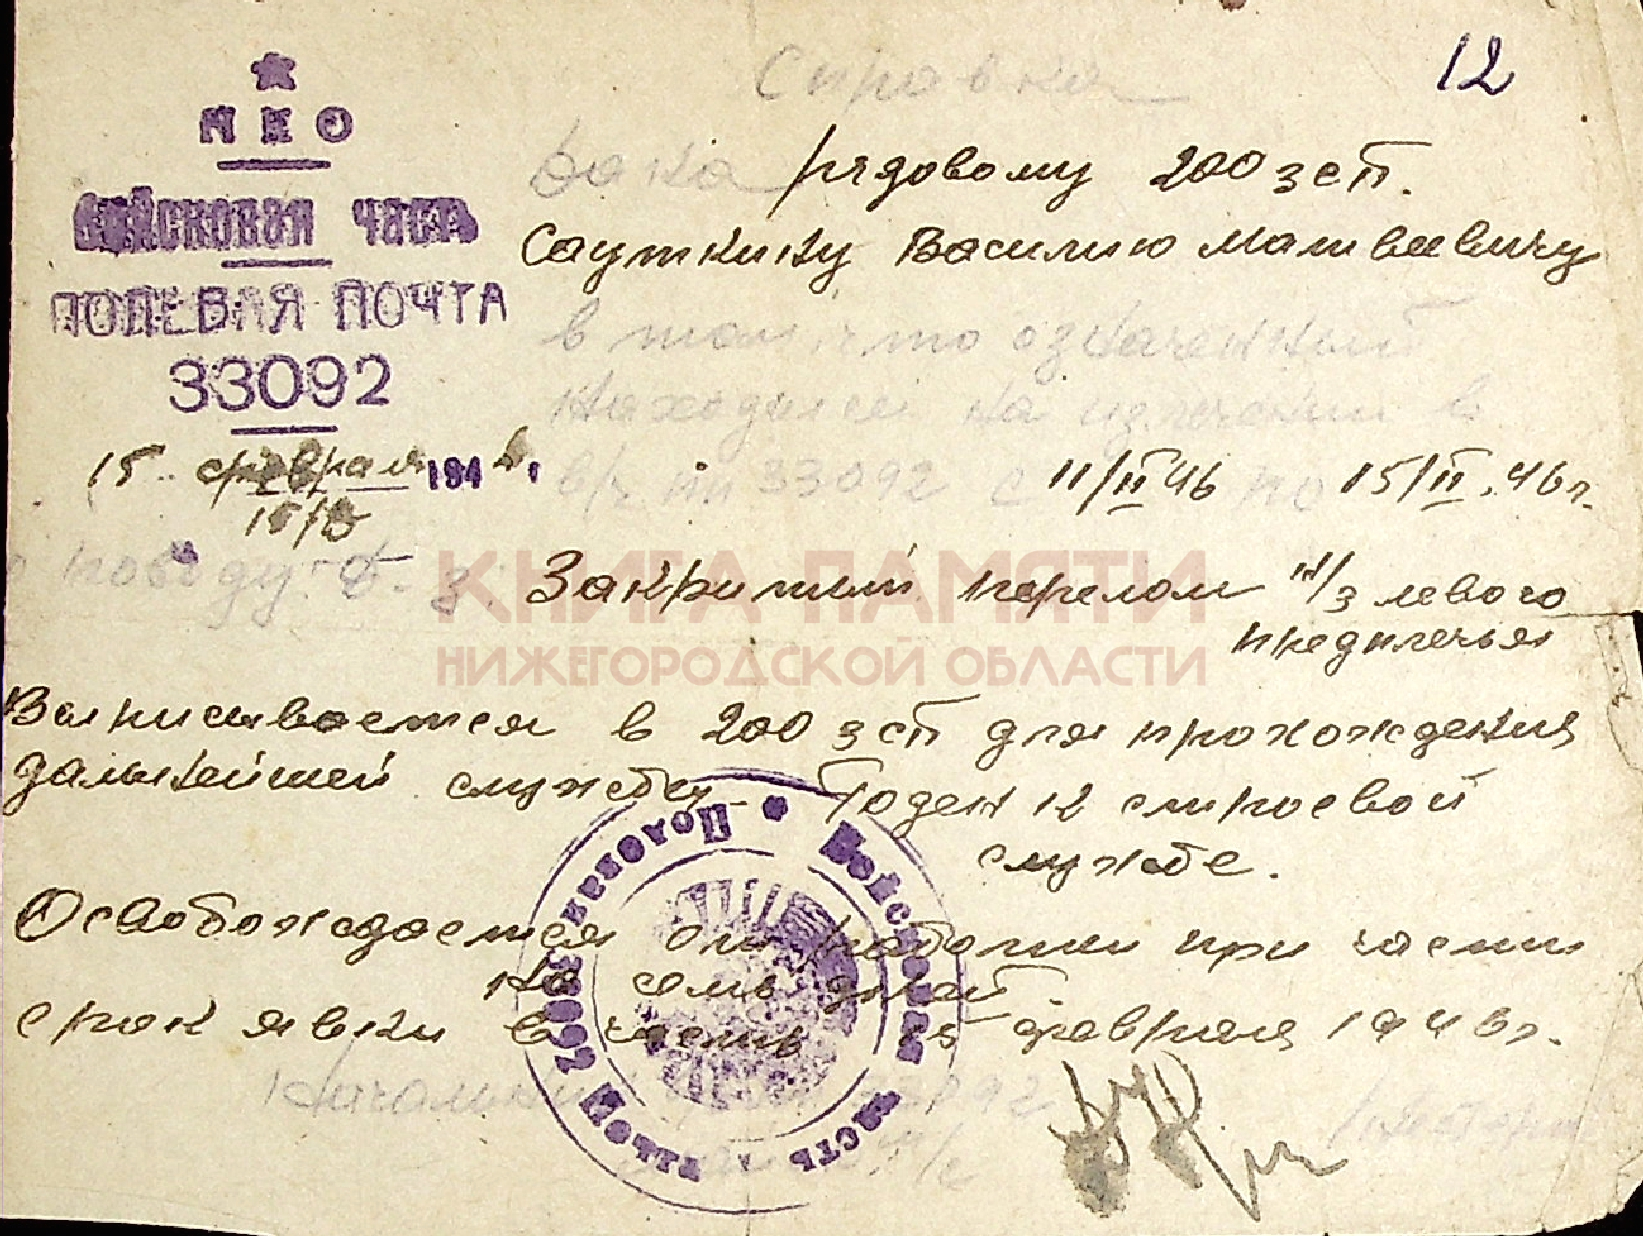 12
Справка
НКО
ВОЙСКОВАЯ ЧАСТЬ
ПОЛЕВАЯ ПОЧТА
33092
15 февраля 1946
15/II
Дана рядовому 200 зсп.
Сауткину Василию Матвеевичу
в том, что означенный
находился на излечении в
в/ч пп 33092 с 11/II 46 по 15/II.46г.
по поводу Закритый перелом н/з левого
предплечья
КНИГА ПАМЯТИ
НИЖЕГОРОДСКОЙ ОБЛАСТИ
Выписывается в 200 зсп для прохождения
дальнейшей службы. Годен к строевой
службе.
Освобождается от работы при части
на семь дней.
срок явки в часть 15 февраля 1946г.
Начальник 33092
м/с
Войсковая часть • Полевая Почта 33092